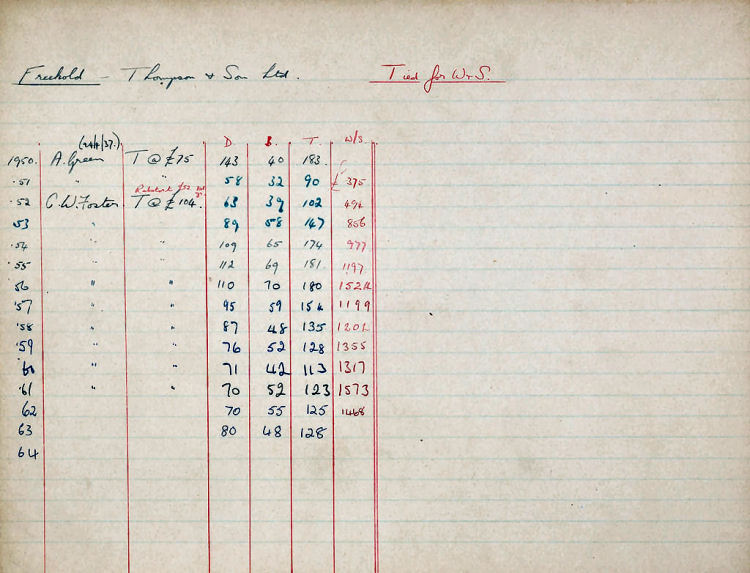 Freehold - Thompson & Son Ltd. Tied for W & S.
(24/4/37.) D. B. T. W/S.
1950. A. Green T @ £75 143 40 183.
'51 " " 58 32 90 £ 375
Rebate £52
'52 C. W. Foster T @ £104. 63 39 102 494
'53 " " 89 58 147 856
'54 " " 109 65 174 977
'55 " " 112 69 181 1197
'56 " " 110 70 180 1524
'57 " " 95 59 154 1199
'58 " " 87 48 135 1201
'59 " " 76 52 128 1355
'60 " " 71 42 113 1317
'61 " " 70 52 123 1573
62 70 55 125 1468
63 80 48 128
64